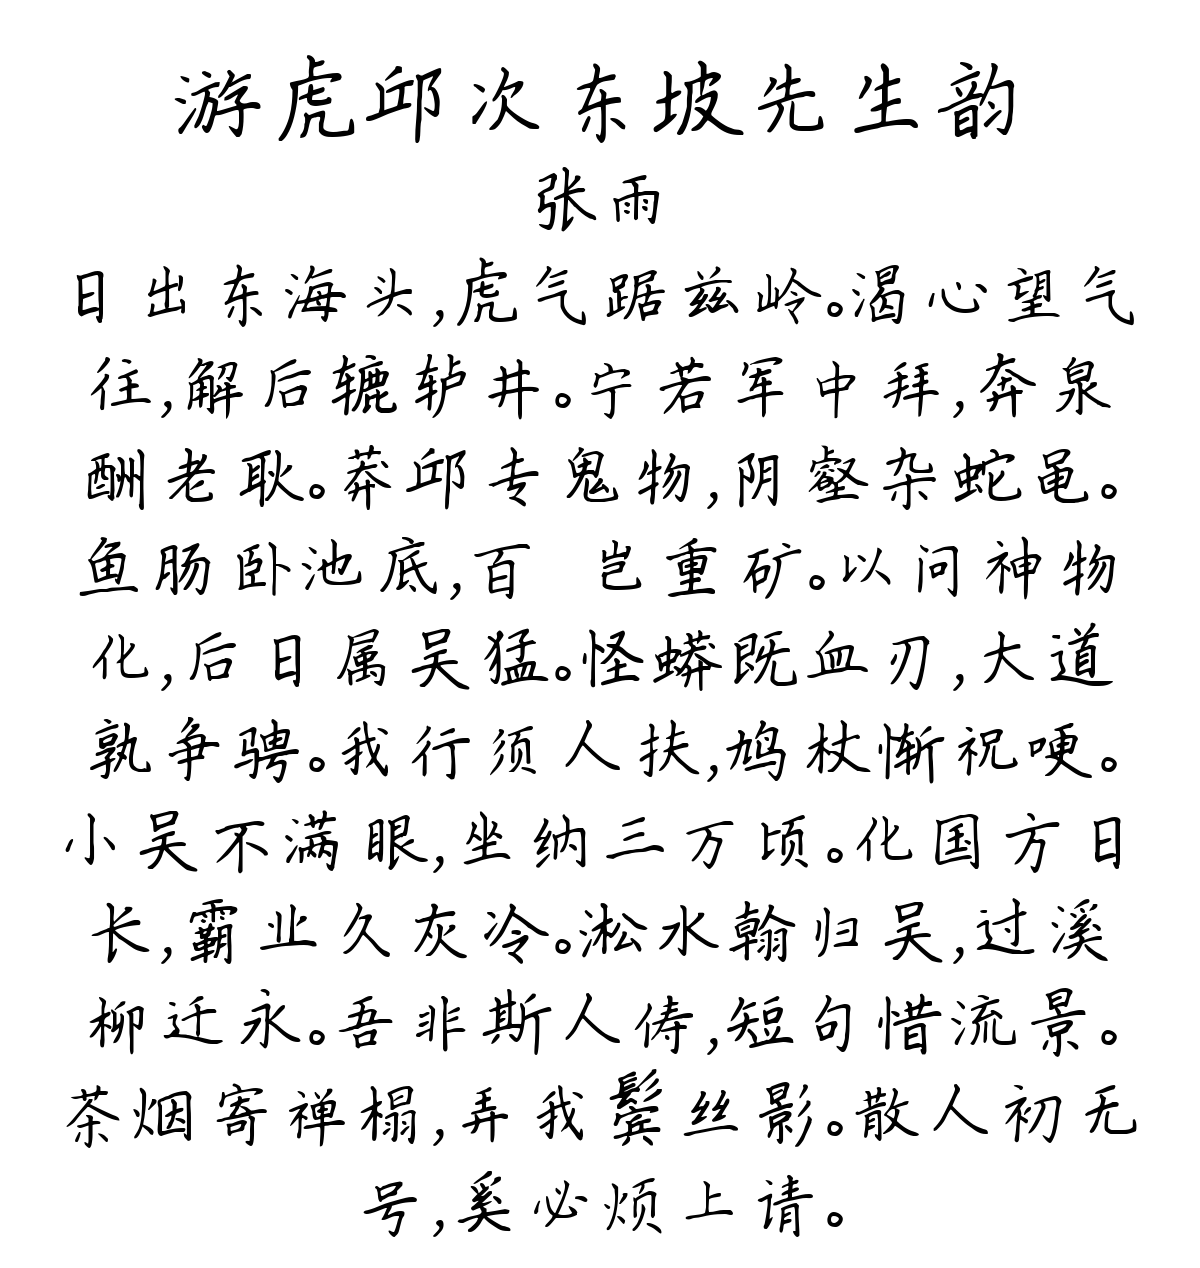 游虎邱次东坡先生韵
张雨
日出东海头,虎气踞兹岭。渴心望气
往,解后辘轳井。宁若军中拜,奔泉
酬老耿。莽邱专鬼物,阴壑杂蛇黾。
鱼肠卧池底,百 岂重矿。以问神物
化,后日属吴猛。怪蟒既血刃,大道
孰争骋。我行须人扶,鸠杖惭祝哽。
小吴不满眼,坐纳三万顷。化国方日
长,霸业久灰冷。淞水翰归吴,过溪
柳迁永。吾非斯人俦,短句惜流景。
茶烟寄禅榻,弄我鬓丝影。散人初无
号,奚必烦上请。